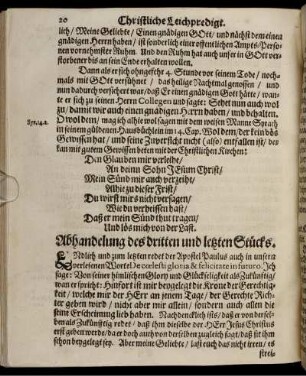 20 Christliche Leichpredigt.
lich / Meine Geliebte / Einen gnädigen GOtt / und nächst dem einen
gnädigen Herrn haben / ist sonderlich einer offentlichen Ampts-Perso-
nen vornehmster Ruhm. Und den Ruhm hat auch unser in GOtt ver-
storbener bis an sein Ende erhalten wollen.
Dann als er sich ohngefehr 4. Stunde vor seinem Tode / noch-
mals mit GOtt versühnet / das heilige Nachtmal genossen / und
nun dadurch versichert war / daß Er einen gnädigen Gott hätte / wand-
te er sich zu seinen Herrn Collegen und sagte: Sehet nun auch wol
zu / damit wir auch einen gnädigen Herrn haben / und behalten.
Syr. 14.2.
O wol dem / mag ich also wol sagen mit dem weisen Manne Syrach
in seinem güldenen Hausbüchlein im 14. Cap. Wol dem / der kein bös
Gewissen hat / und seine Zuversicht nicht (also) entfallen ist / der
kan mit gutem Gewissen beten mit der Christlichen Kirchen:
Den Glauben mir verleihe /
An deinn Sohn JEsum Christ /
Mein Sünd mir auch verzeihe /
Alhie zu dieser Frist /
Du wirst mirs nicht versagen /
Wie du verheissen hast /
Daß er mein Sünd thut tragen /
Und lös mich von der Last.
Abhandelung des dritten und letzten Stücks.
Endlich und zum letzten redet der Apostel Paulus auch in unsern
verlesenen Worten De coelesti gloria & felicitate in futuro. Ich
sage: Von seiner himlischen Glory und Glückseligkeit als Zukünftig /
wan er spricht: Hinfort ist mir beygelegt die Krone der Gerechtig-
keit / welche mir der HErr an jenem Tage / der Gerechte Rich-
ter geben wird / nicht aber mir allein / sondern auch allen die
seine Erscheinung lieb haben. Nachdencklich ists / daß er von dersel-
ben als Zukünfftig redet / daß ihm dieselbe der HErr JEsus Christus
erst geben werde / da er doch auch von derselben zugleich sagt / daß sie ihm
schon beygelegt sey. Aber meine Geliebte / last euch das nicht irren / es
strei-